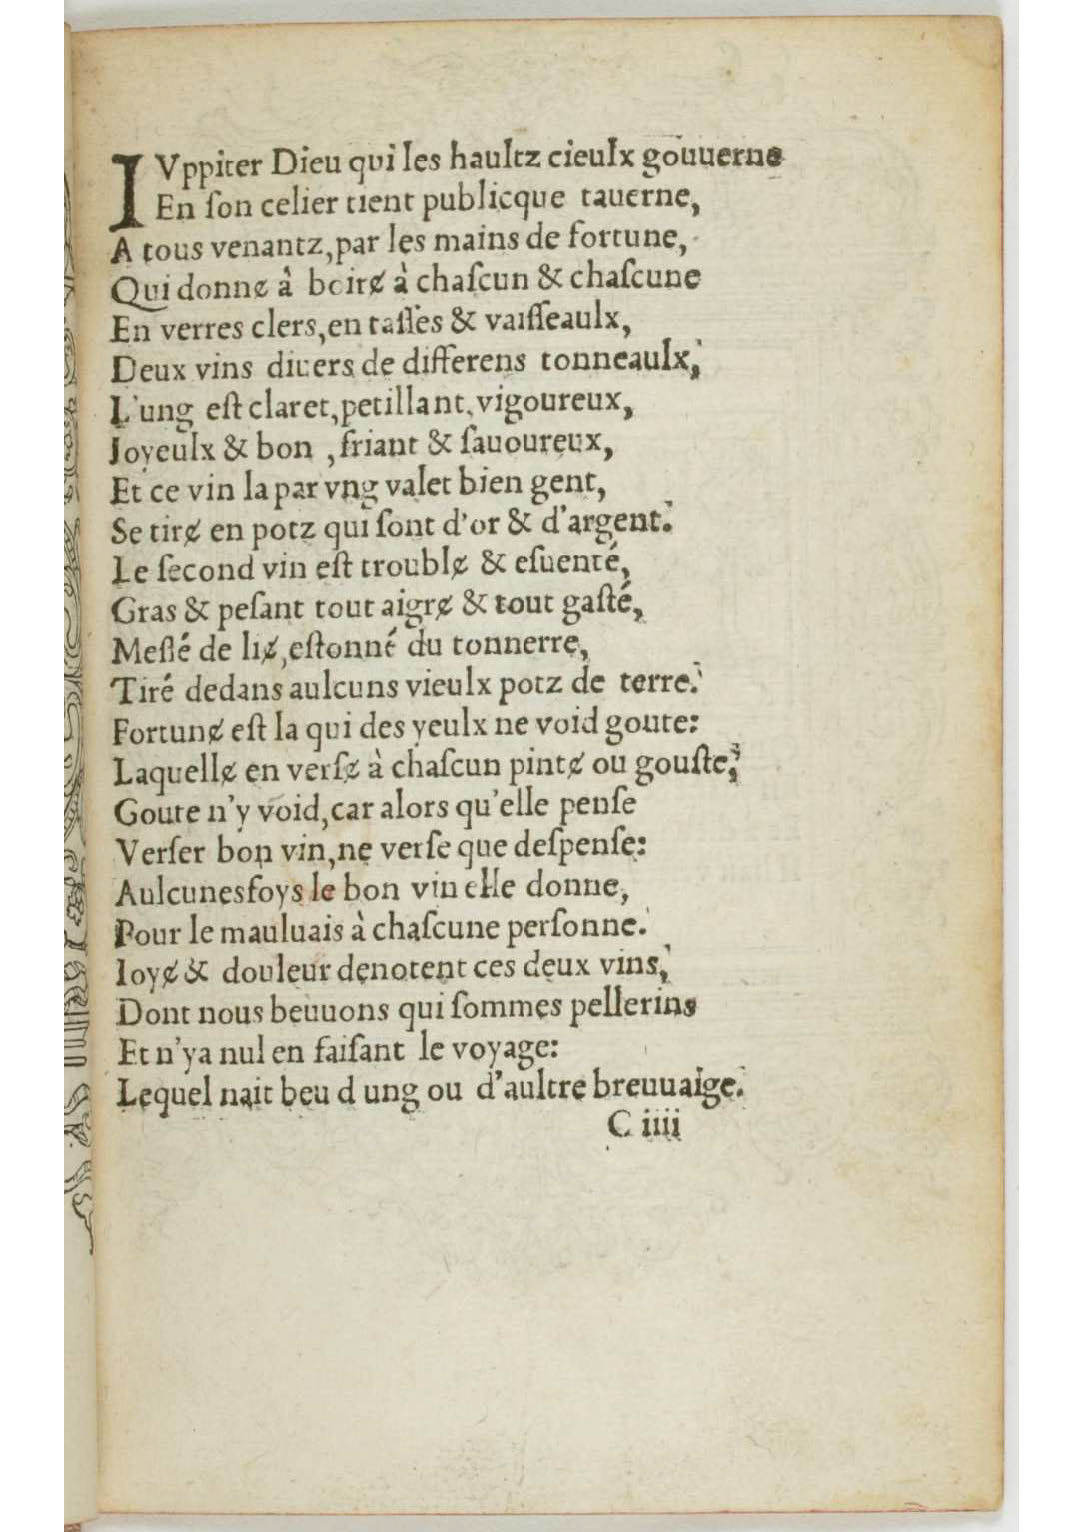 IVppiter Dieu qui les haultz cieulx gouuerne
En ſon celier tient publicque tauerne,
A tous venantz, par les mains de fortune,
Qui donnɇ â boirɇ à chaſcun & chaſcune
En verres clers, en taſſes & vaiſſeaulx,
Deux vins diuers de differens tonneaulx,
L'ung eſt claret, petillant, vigoureux,
Joyeulx & bon , friant & ſauoureux,
Et ce vin la par vng valet bien gent,
Se tirɇ en potz qui ſont d'or & d'argent.
Le ſecond vin eſt troublɇ & eſuenté,
Gras & peſant tout aigrɇ & tout gaſté,
Meſlé de liɇ, eſtonné du tonnerre,
Tiré dedans aulcuns vieulx potz de terre.
Fortunɇ eſt la qui des yeulx ne void goute:
Laquellɇ en verſɇ à chaſcun pintɇ ou gouſte,
Goute n'y void, car alors qu'elle penſe
Verſer bon vin, ne verſe que deſpenſe:
Aulcunesfoys le bon vin elle donne,
Pour le mauluais à chaſcune perſonne.
Ioyɇ & douleur denotent ces deux vins,
Dont nous beuuons qui ſommes pellerins
Et n'ya nul en faiſant le voyage:
Lequel nait beu d ung ou d'aultre breuuaige.
C iiii